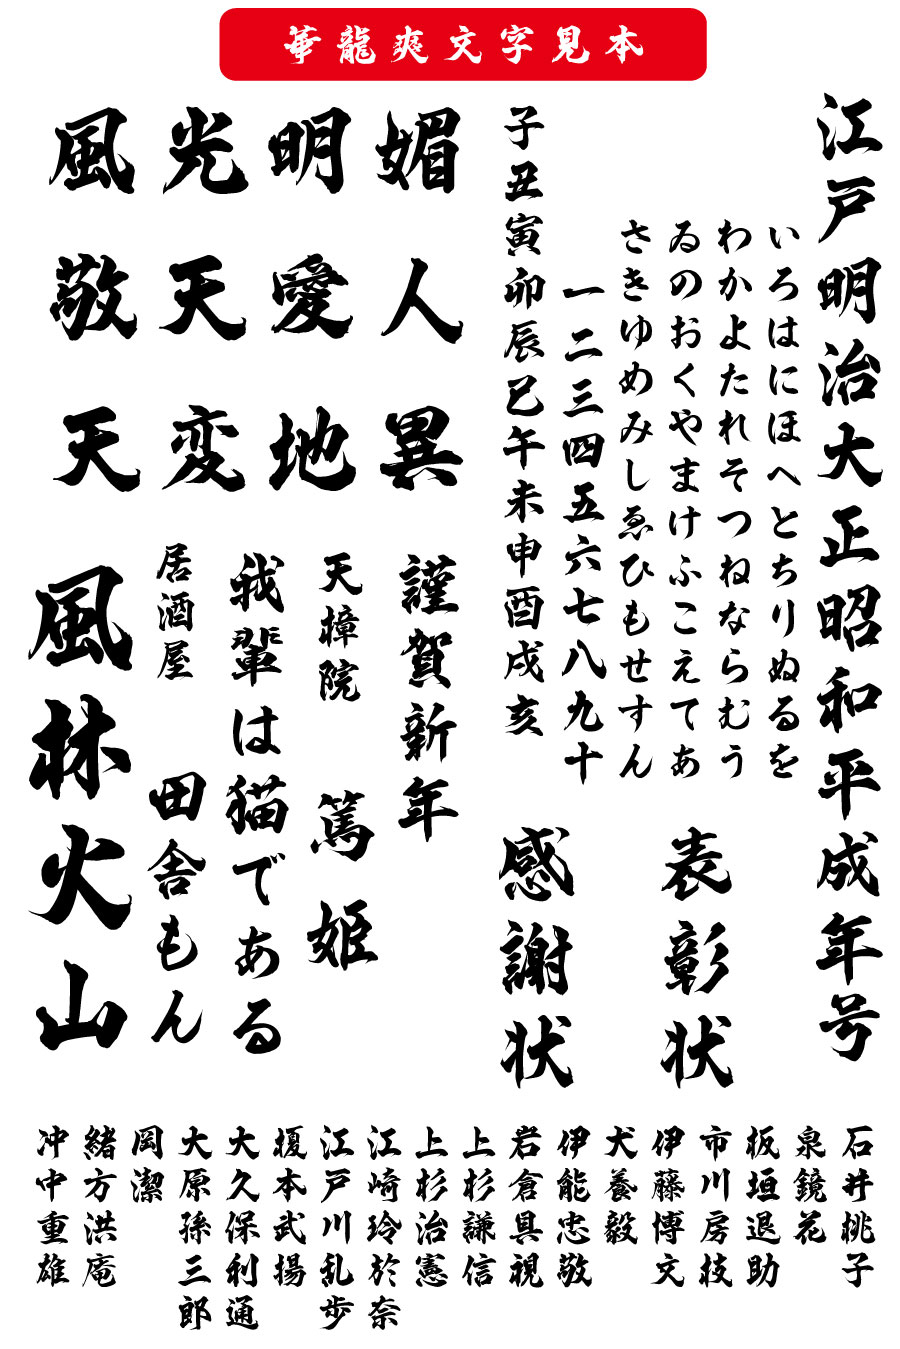 華龍爽文字見本
江戸明治大正昭和平成年号
いろはにほへとちりぬるを
わかよたれそつねならむう
ゐのおくやまけふこえてあ
さきゆめみしゑひもせすん
一二三四五六七八九十
子丑寅卯辰巳午未申酉戌亥
表彰状
感謝状
風光明媚
敬天愛人
天変地異
謹賀新年
天樟院 篤姫
我輩は猫である
居酒屋 田舎もん
風林火山
石井桃子
泉鏡花
板垣退助
市川房枝
伊藤博文
犬養毅
伊能忠敬
岩倉具視
上杉謙信
上杉治憲
江崎玲於奈
江戸川乱歩
榎本武揚
大久保利通
大原孫三郎
岡潔
緒方洪庵
冲中重雄